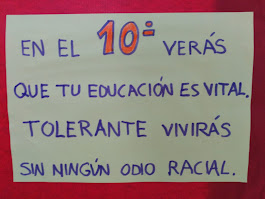 EN EL 10º VERÁS
QUE TU EDUCACIÓN ES VITAL.
TOLERANTE VIVIRÁS
SIN NINGÚN ODIO RACIAL.